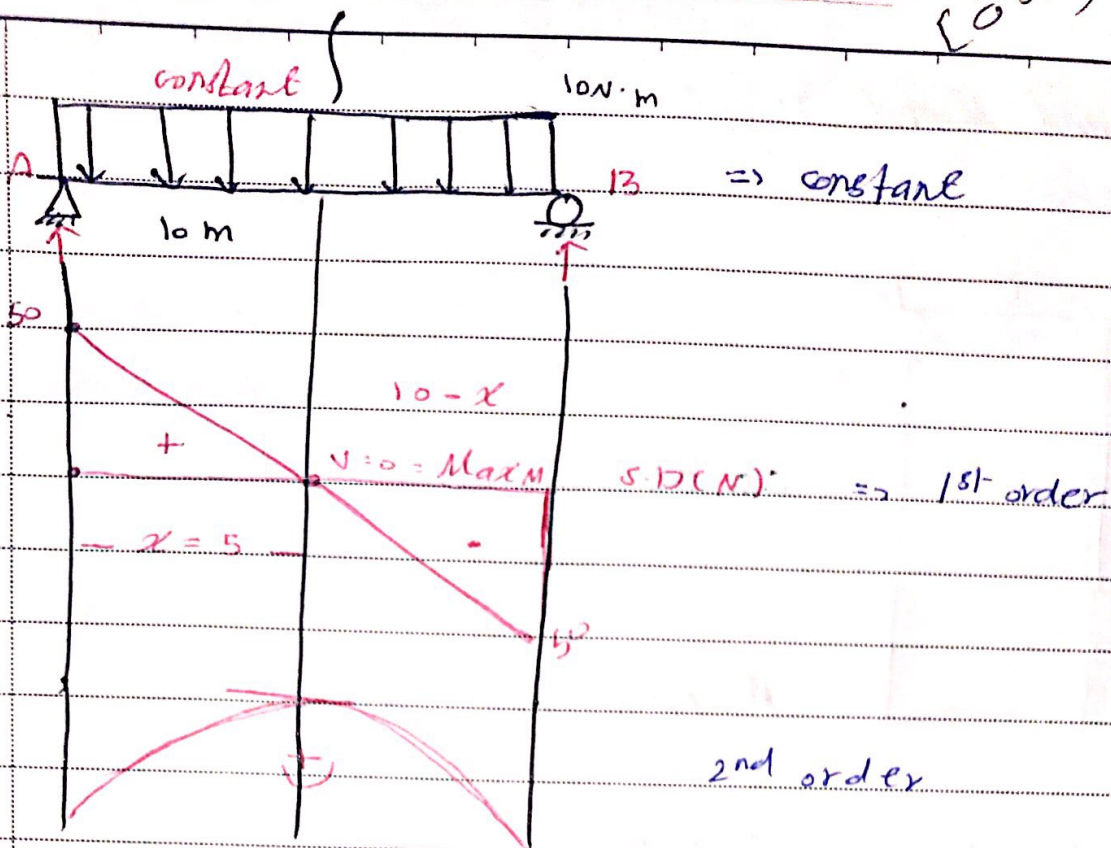 constant
10N.m
A
B => constant
10 m
50
10 - x
+
V=0 = Max M S.D(N) => 1st order
x = 5
-
50
+
2nd order